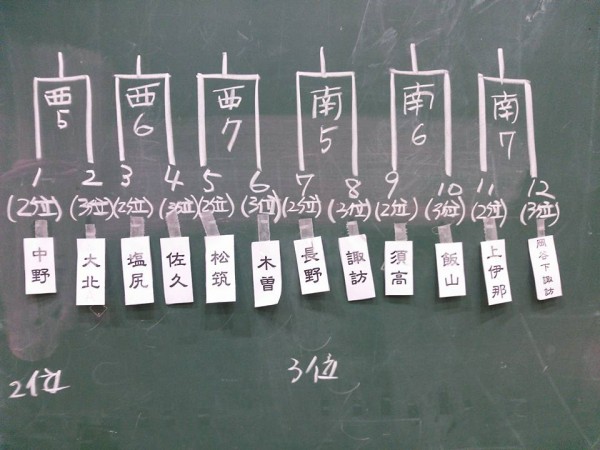 西5 西6 西7 南5 南6 南7
1 2 3 4 5 6 7 8 9 10 11 12
(2位) (3位) (2位) (3位) (2位) (3位) (2位) (3位) (2位) (3位) (2位) (3位)
中野 大北 塩尻 佐久 松筑 木曽 長野 諏訪 須高 飯山 上伊那 岡谷下諏訪
2位 3位